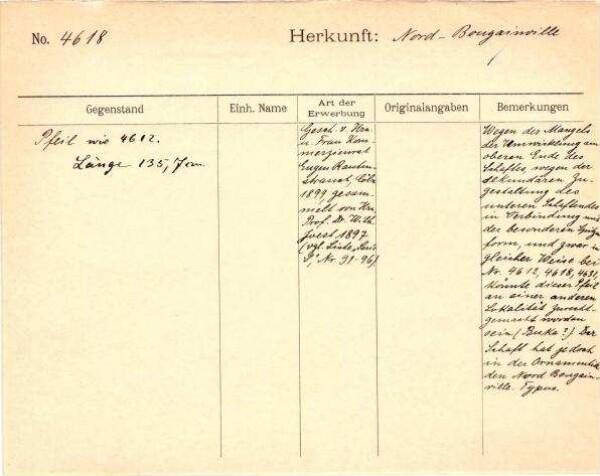 No. 4618 Herkunft: Nord-Bougainville
Gegenstand Einh. Name Art der Erwerbung Originalangaben Bemerkungen
Pfeil wie 4612.
Länge 135,7 cm
Gesch. v. Hrn.
u. Frau Kom-
merzienrat
Eugen Rauten-
strauch, Cöln
1899, gesam-
melt von Hrn.
Prof. Dr. Wilh.
Joest 1897
(vgl. Liste
Nr. 91-96)
Wegen des Mangels
der Umwicklung am
oberen Ende des
Schaftes, wegen der
sekundären Zu-
gestaltung des
unteren Schaftendes
in Verbindung mit
der besonderen
form, und zwar in
gleicher Weise bei
Nr. 4612, 4618, 4631,
könnte dieser Pfeil
an einer anderen
Lokalität zurecht-
gemacht worden
sein (Buka?) Der
Schaft hat jedoch
in der Ornamentik
den Nord Bougain-
ville Typus.